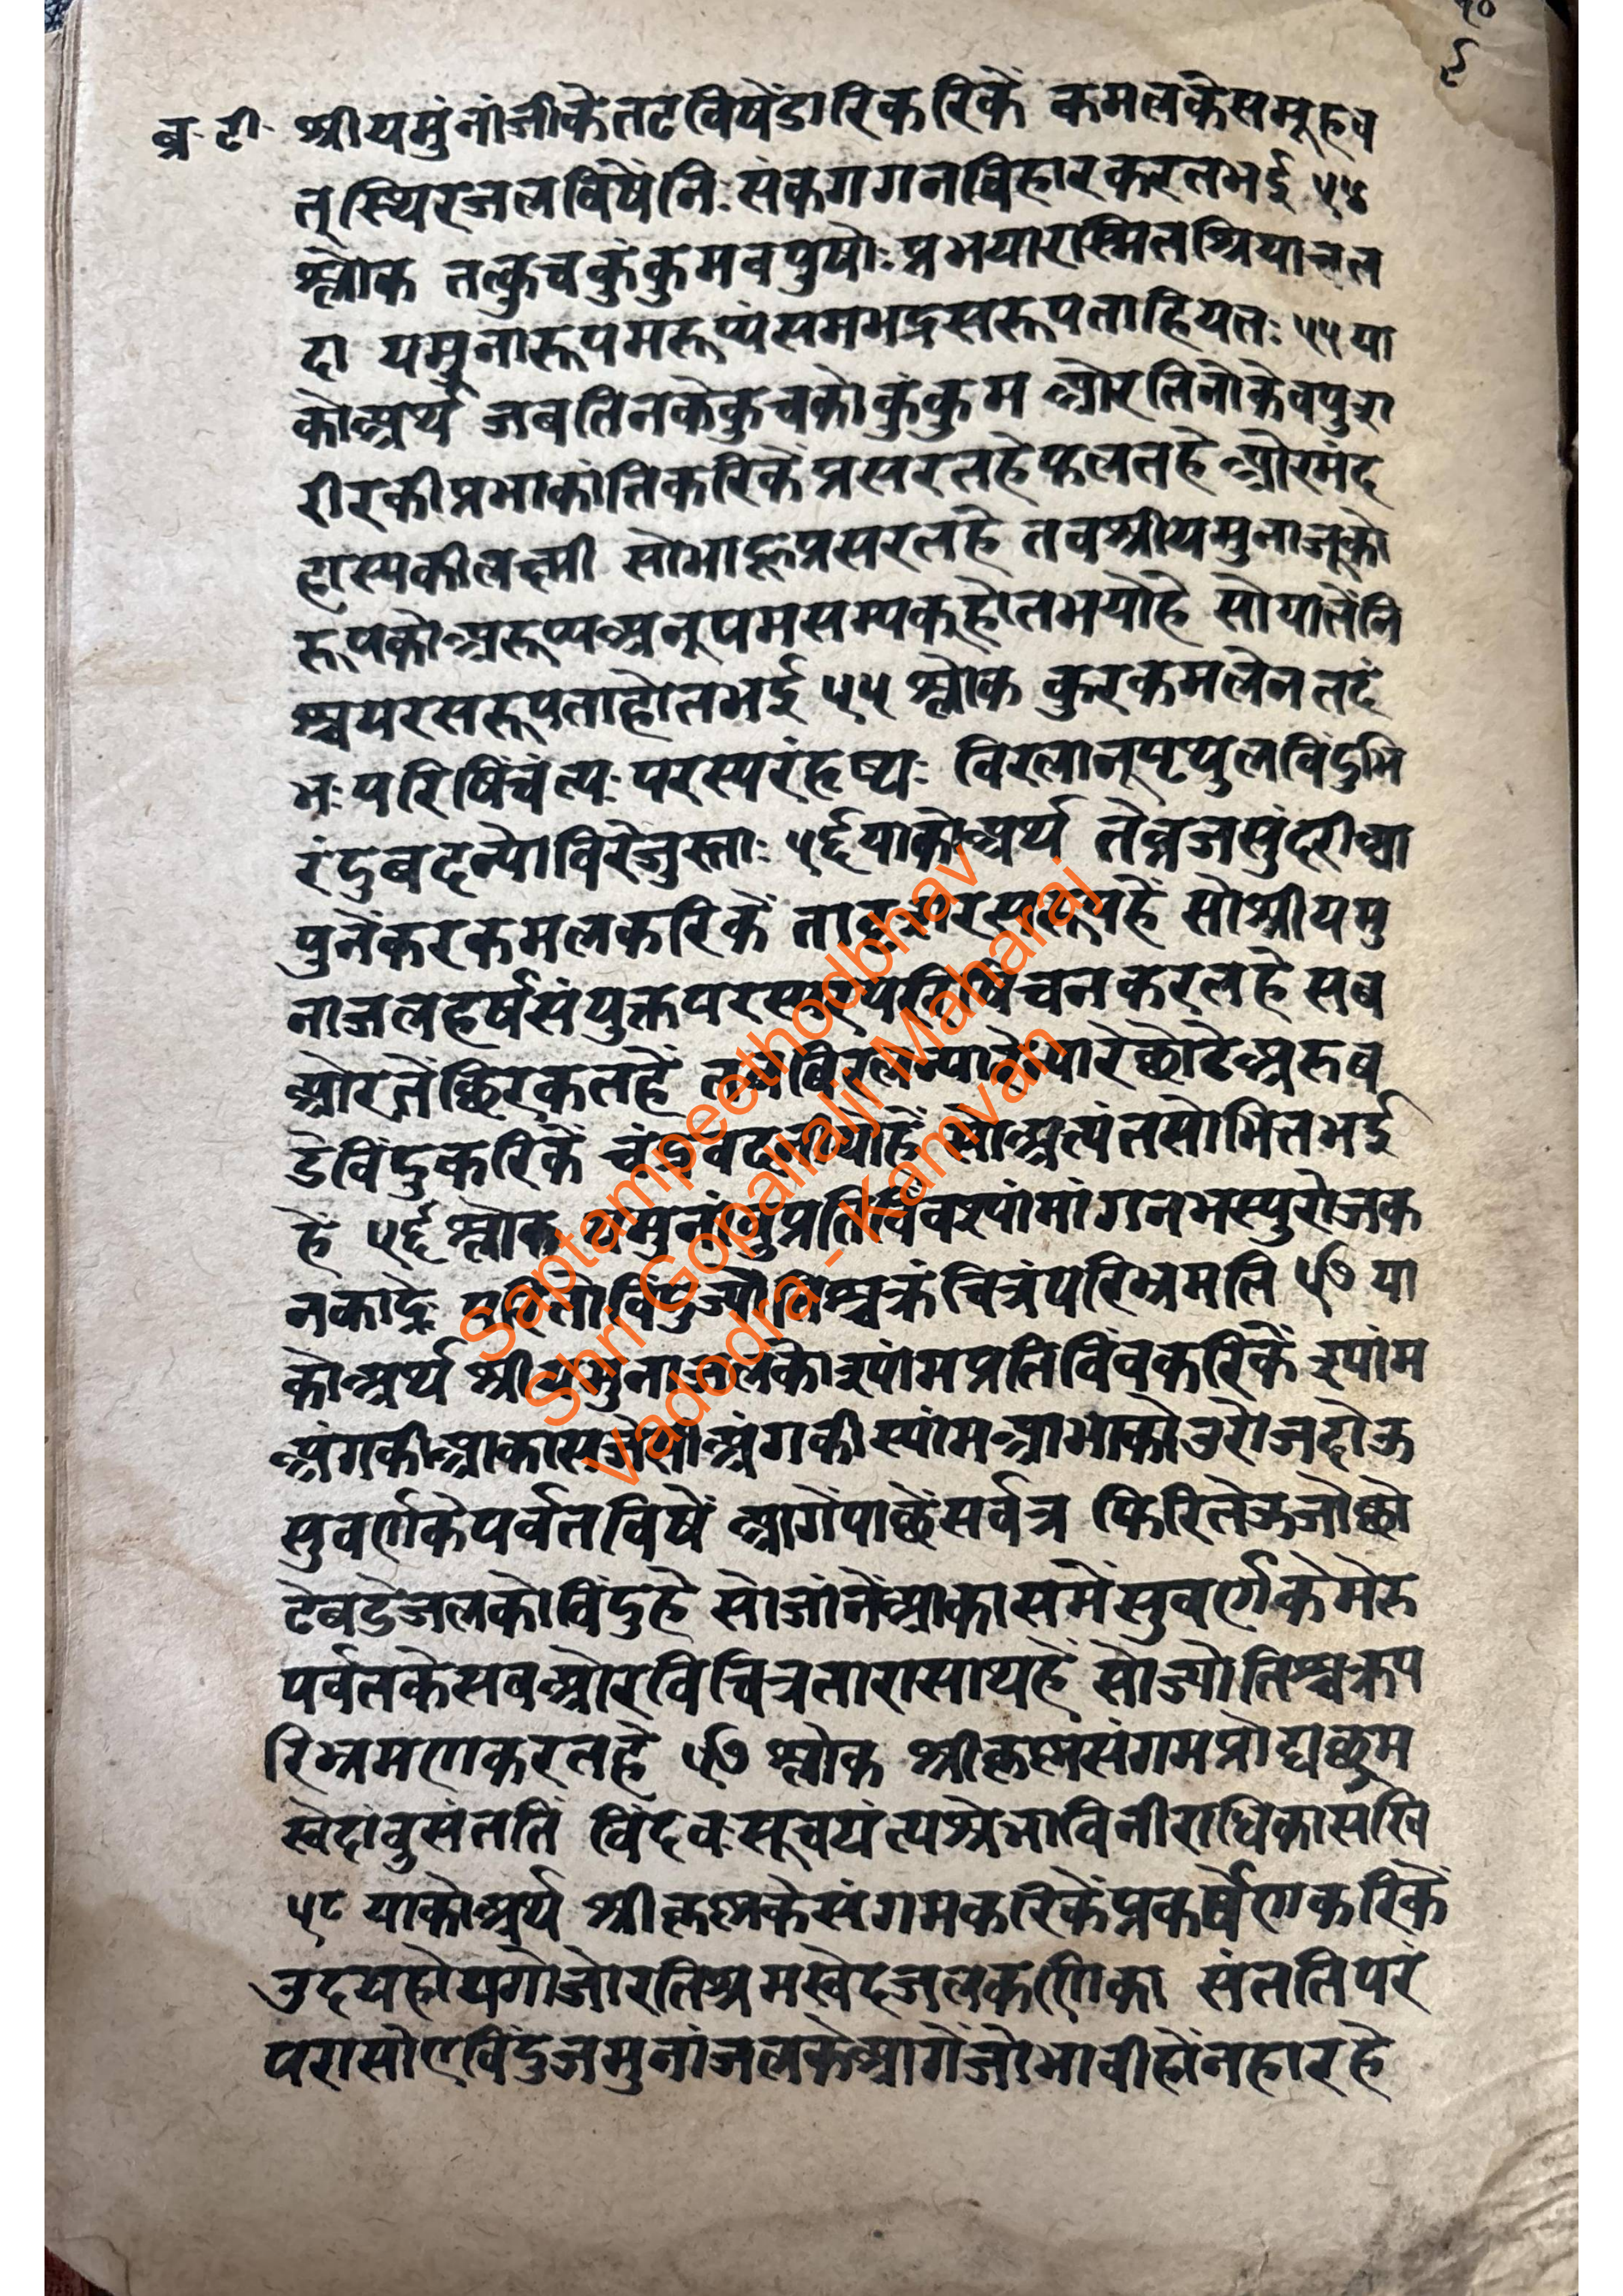 १०
९
ब्र॰ टी॰ श्रीयमुंनांजीकेतटविषेंडारिकरिकें कमलकेसमूहव
त्स्थिरजलविषेंनिःसंकगगनविहारकरतभई ५४
श्लोक तत्कुचकुंकुमवपुषोः प्रभयारस्मितश्रियाचल
दा यमुनारूपमरूप्यंसमभद्रसरूपताहियतः ५५ या
कोअर्थ जबतिनकेकुचकोकुंकुम ओरतिनोकेवपुशा
रीरकीप्रभाकांतिकरिकेंप्रसरतहेफेलतहे ओरमंद
हास्यकीलक्ष्मी सोभाहूप्रसरतहे तबश्रीयमुनाजूको
रूपकोअरूप्यअनुपमसम्यक्होतभयोहे सोयातेंनि
श्चयरसरूपताहोतभई ५५ श्लोक कुरकमलेन तदं
भः परिषिंचंत्यः परस्परंहृष्यः विरलानूपृथुलविंदुभि
रंदुबदन्योविरेजुस्ताः ५६ याकोअर्थ तेव्रजसुंदरीआ
पुनेंकरकमलकरिकें ताकुंजरसरूपहें सोश्रीयमु
नाजलहर्षसंयुक्तपरस्परपरिषिंचनकरतहे सब
ओरतेंछिरकतहें तबविरलन्यारेन्यारेछोटेअरुब
डेविंदुकरिकें चंद्रवदनीयोहें सोअत्यंतसोभितभई
हे ५६ श्लोक यमुनांबुप्रतिविंवश्यांमांगनभस्पुरोजक
नकाद्रेः परितोविंदुज्योतिश्चक्रंचित्रंपरिभ्रमति ५७ या
कोअर्थ श्रीयमुनाजलकोश्यांमप्रतिविंवकरिकें श्यांम
अंगकीआकासजेसोअंगकीस्यांमआभाकोउरोजदोऊ
सुवर्णकेपर्वतविषें आगेंपाछेंसर्वत्र फिरितेऊजोछो
टेबडेजलकोविंदुहे सोजांनेंआकासमेंसुवर्णकेमेरु
पर्वतकेसबओरविचित्रतारासाथहें सोज्योतिश्चक्रप
रिभ्रमणकरतहे ५७ श्लोक श्रीकृष्णसंगमप्रोद्यछ्रम
स्वेदांवुसंततिं विंदवःसूचयंत्यश्रेभाविनीराधिकासखि
५८ याकोअर्थ श्रीकृष्णकेसंगमकरिकेंप्रकर्षेणकरिकें
उदयहोयगोजोरतिश्रमस्वेदजलकणिका संततिपरं
परासोएविंदुजमुनांजलकेआगेंजोभावीहोंनहारहे
Saptampeethodbhav
Shri Gopallalji Maharaj
Vadodra - Kamvan